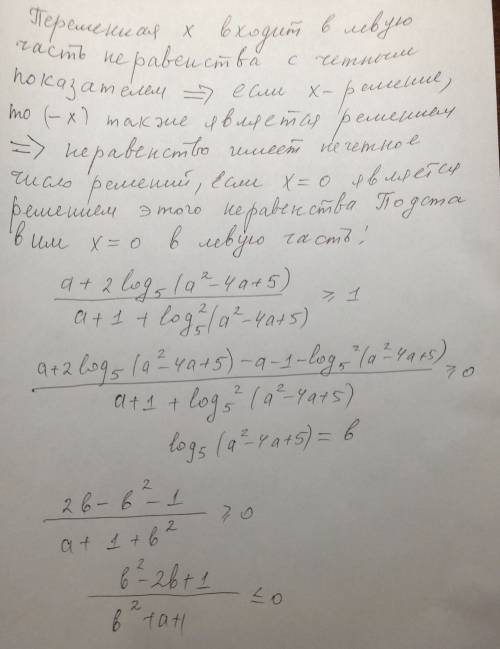 Переменная x входит в левую
часть неравенства с четным
показателем => если x - решение,
то (-x) также является решением
=> неравенство имеет нечетное
число решений, если x = 0 является
решением этого неравенства Подста
вим x = 0 в левую часть:
(a + 2 log₅ (a² - 4a + 5)) / (a + 1 + log₅² (a² - 4a + 5)) ≥ 1
(a + 2 log₅ (a² - 4a + 5) - a - 1 - log₅² (a² - 4a + 5)) / (a + 1 + log₅² (a² - 4a + 5)) ≥ 0
log₅ (a² - 4a + 5) = b
(2b - b² - 1) / (a + 1 + b²) ≥ 0
(b² - 2b + 1) / (b² + a + 1) ≤ 0